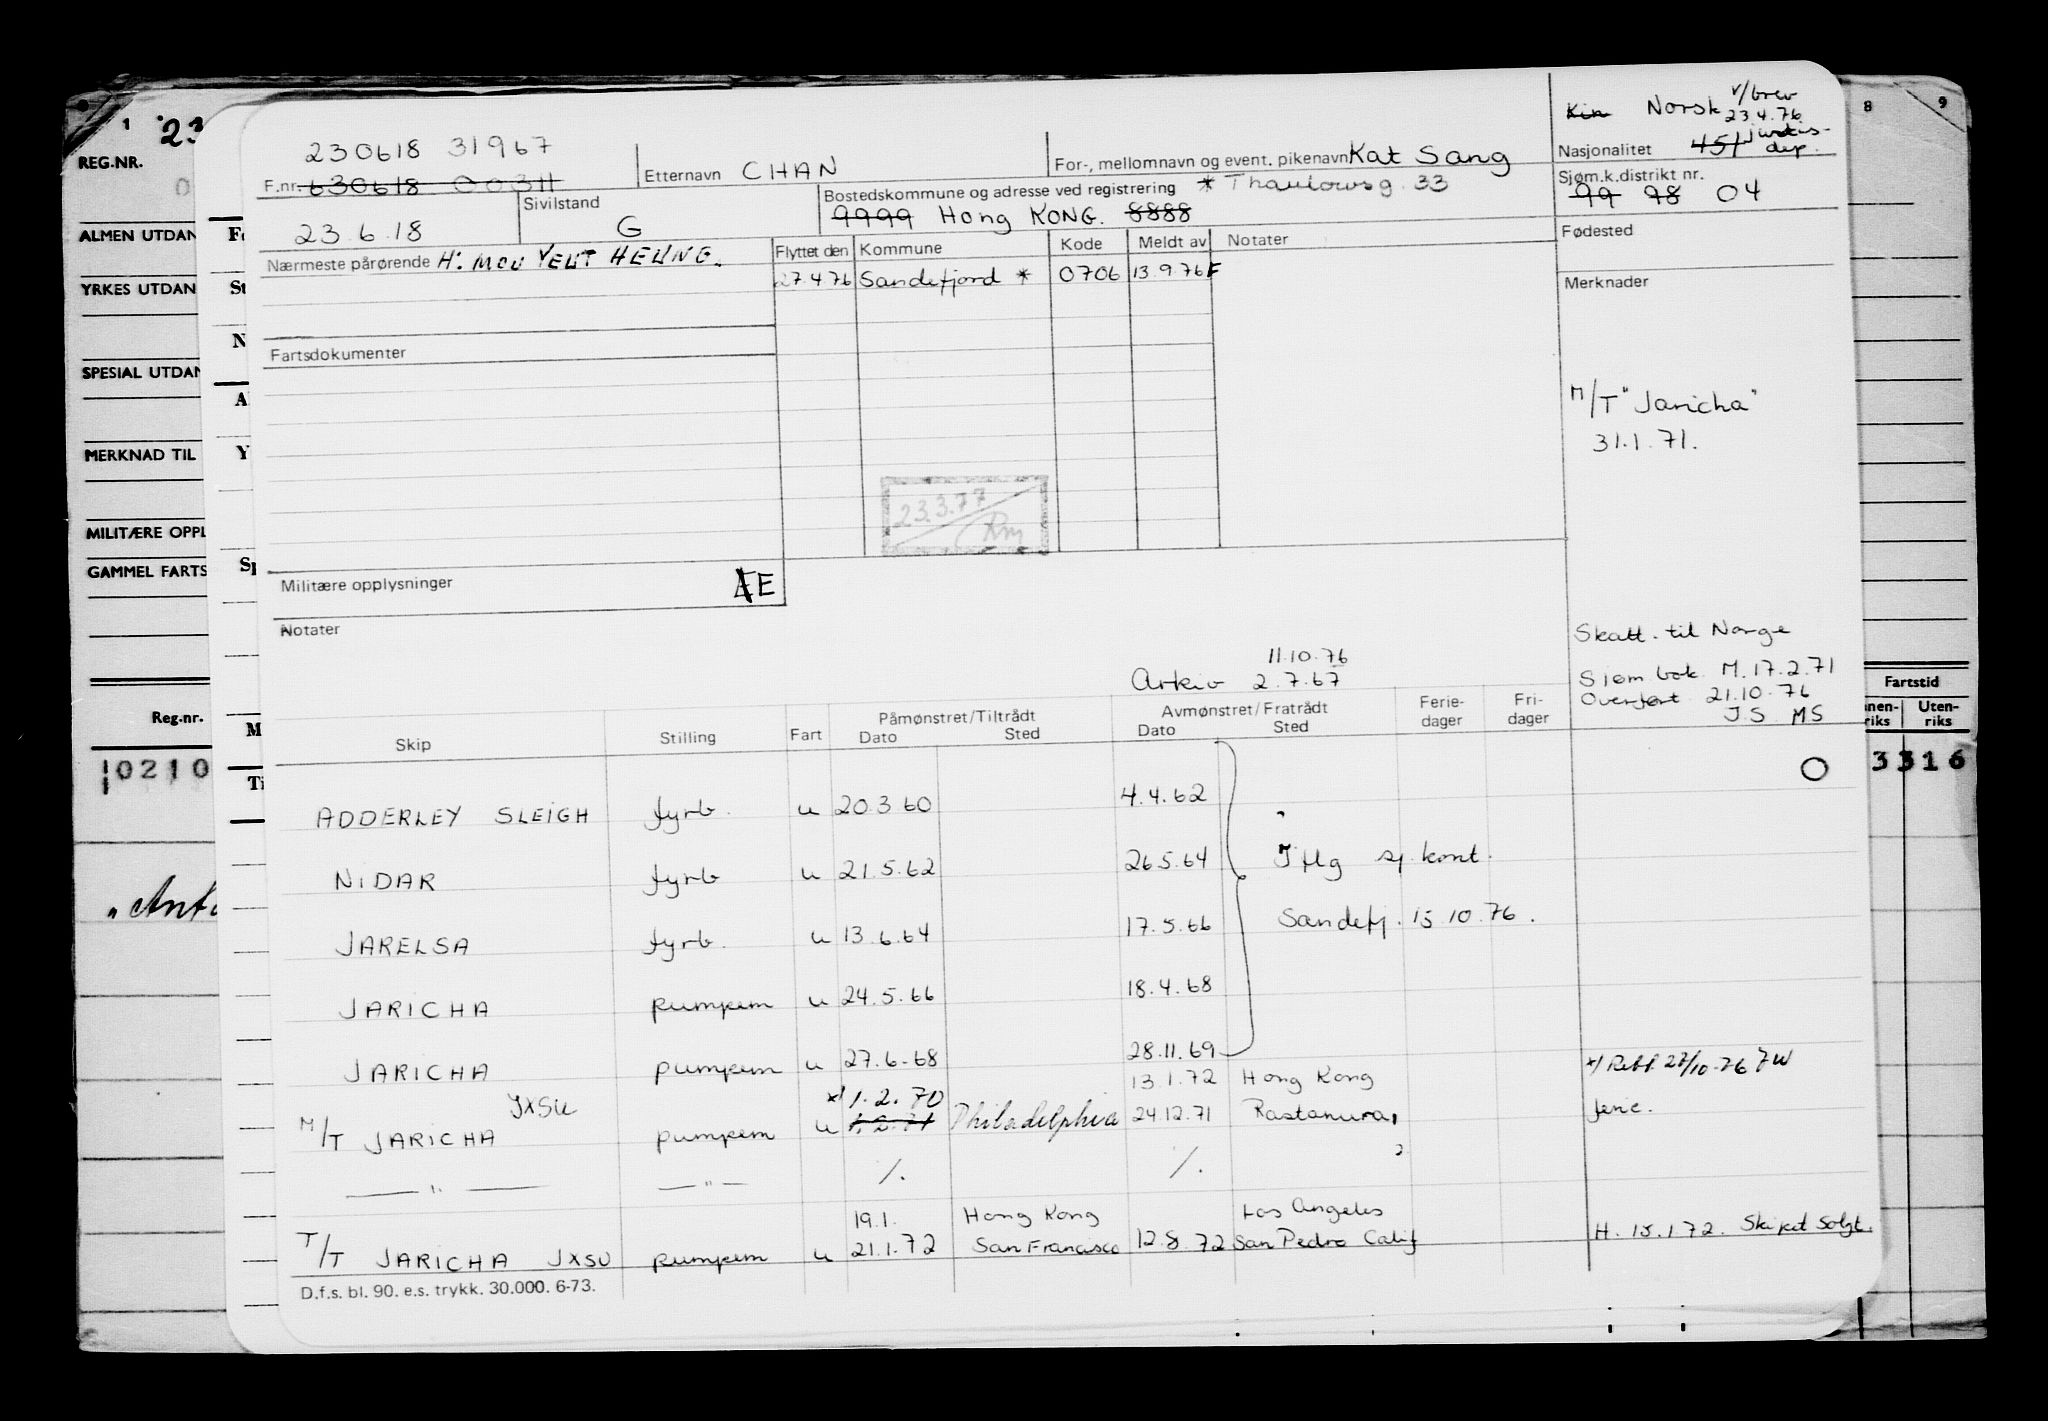 1 23
REG.NR.
0
ALMEN UTDAN
YRKES UTDAN
SPESIAL UTDAN
MERKNAD TIL
MILITÆRE OPPL
GAMMEL FARTS
Reg-nr.
0210
8 9
Fartstid
Uten-
riks riks
3316
230618 31967
F.nr. 630618 00311
Etternavn CHAN
For-, mellomnavn og event. pikenavn Kat Sang
Kin Norsk v/brev
23.4.76
Nasjonalitet 451
dep.
23.6.18
Sivilstand
G
Bostedskommune og adresse ved registrering * Thaulowsg. 33
9999 Hong KONG. 8888
Sjøm.k.distrikt nr.
99 98 04
Nærmeste pårørende H: MOU YEUT HEUNG.
Flyttet den Kommune Kode Meldt av Notater
27.4.76 Sandefjord * 0706 13.9.76 F
Fødested
Merknader
Fartsdokumenter
M/T "Jaricha"
31.1.71.
23.3.77
Rm
Militære opplysninger E
Notater
Skatt. til Norge
Sjøm bok. M. 17.2.71
Overført 21.10.76
J.S MS
11.10.76
Arkiv 2.7.67
Skip Stilling Fart Påmønstret/Tiltrådt Avmønstret/Fratrådt Ferie-
dager Fri-
dager
Dato Sted Dato Sted
ADDERLEY SLEIGH fyrb. u 20.3.60 4.4.62
NIDAR fyrb u 21.5.62 26.5.64 Iflg sj. kont.
JARELSA fyrb. u 13.6.64 17.5.66 Sandefj. 15.10.76.
JARICHA pumpem u 24.5.66 18.4.68
JARICHA pumpem u 27.6.68 28.11.69
M/T JARICHA JXSU pumpem u *) 1.2.70 1.2.71 Philadelphia 13.1.72 Hong Kong
24.12.71 Rastanura,
*) Rett. 27/10-76 JW
ferie.
— " — — " — ./. ./.
T/T JARICHA JXSU pumpem u 19.1. Hong Kong Los Angeles
21.1.72 San Francisco 12.8.72 San Pedro Calif
H. 15.1.72. Skipet Solgt.
D.f.s. bl. 90. e.s. trykk. 30.000. 6-73.